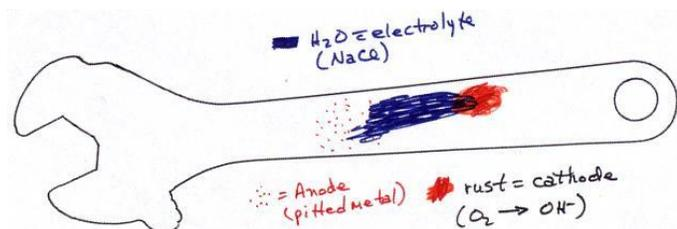 H₂O = electrolyte
(NaCl)
= Anode
(pitted metal)
rust = cathode
(O₂ → OH-)